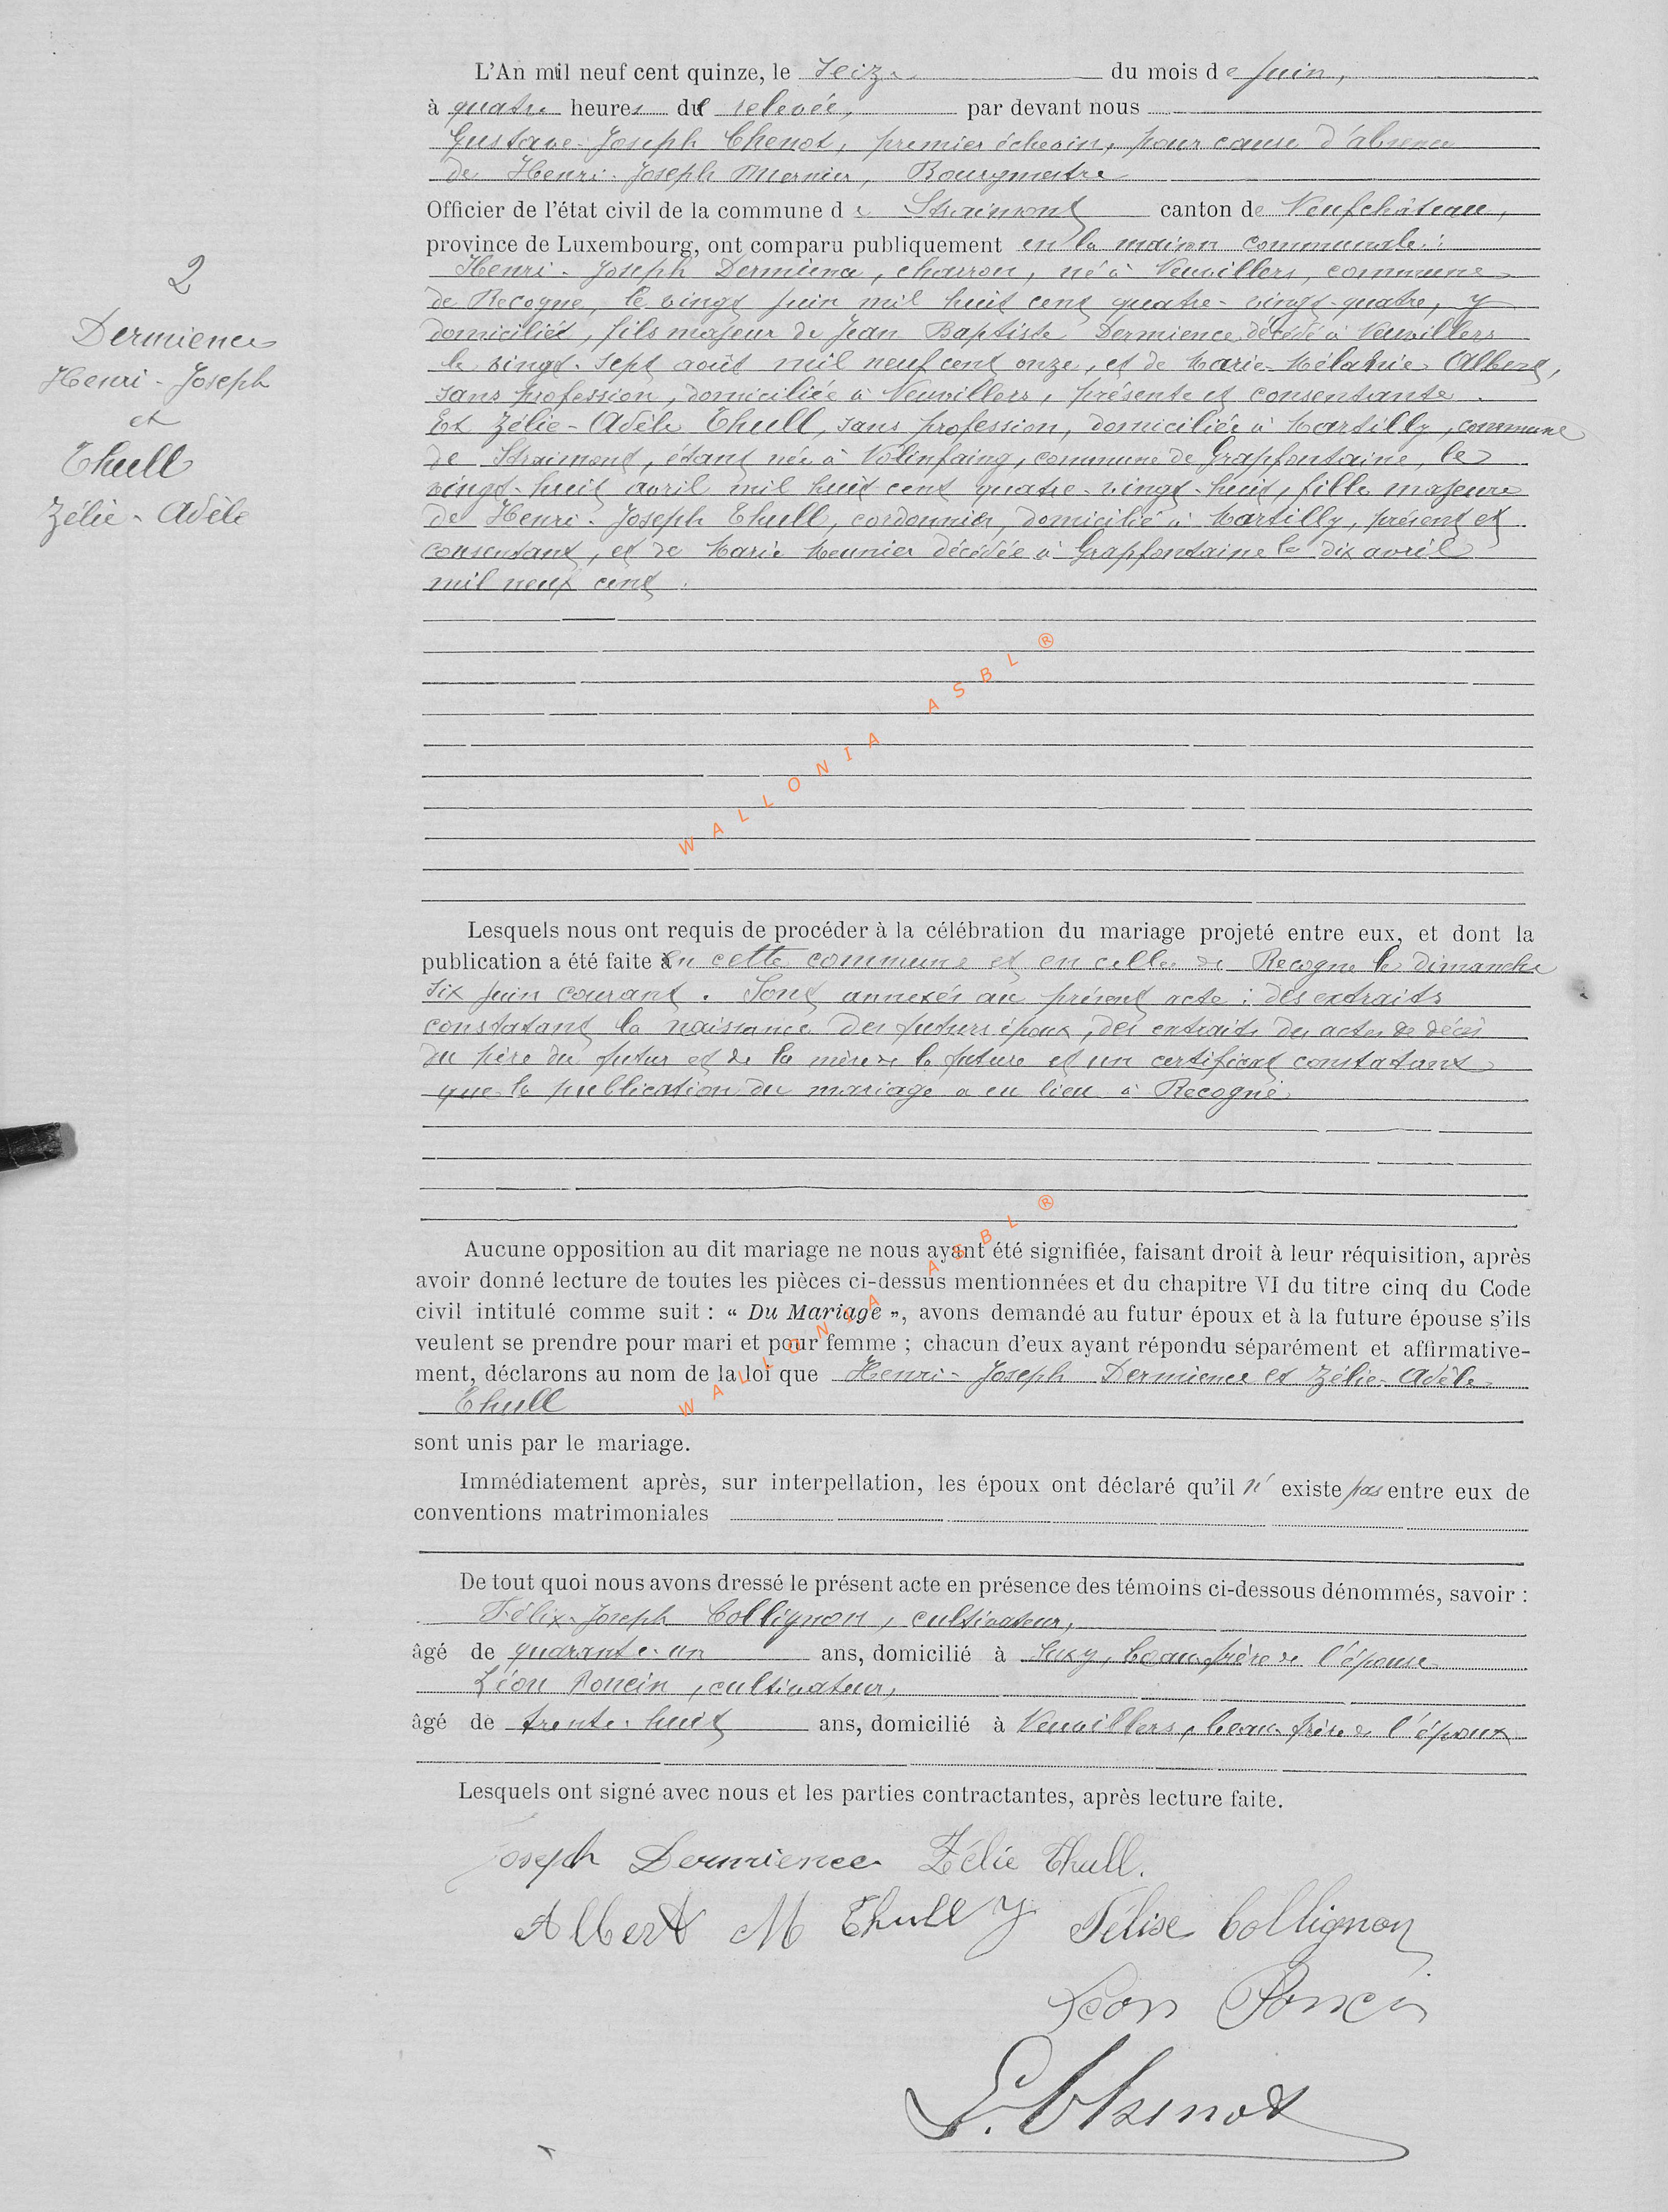 L'An mil neuf cent quinze, le seize du mois de juin,
à quatre heures de relevée, par devant nous
Gustave-Joseph Chenot, premier échevin, pour cause d'absence
de Henri-Joseph Mernier, Bourgmestre
Officier de l'état civil de la commune de Straimont canton de Neufchâteau,
province de Luxembourg, ont comparu publiquement en la maison communale :
Henri-Joseph Dermience, charron, né à Neuvillers, commune
de Recogne, le vingt juin mil huit cent quatre-vingt-quatre, y
domicilié, fils majeur de Jean Baptiste Dermience décédé à Neuvillers
le vingt-sept août mil neuf cent onze, et de Marie-Mélanie Albert,
sans profession, domiciliée à Neuvillers, présente et consentante.
Et Zélie-Adèle Thull, sans profession, domiciliée à Martilly, commune
de Straimont, étant née à Nolinfaing, commune de Grapfontaine, le
vingt-huit avril mil huit cent quatre-vingt-huit, fille majeure
de Henri-Joseph Thull, cordonnier, domicilié à Martilly, présent et
consentant, et de Marie Meunier décédée à Grapfontaine le dix avril
mil neuf cent.
2
Dermience
Henri-Joseph
et
Thull
Zélie-Adèle
WALLONIA ASBL ®
Lesquels nous ont requis de procéder à la célébration du mariage projeté entre eux, et dont la
publication a été faite en cette commune et en celle de Recogne le dimanche
six juin courant. Sont annexés au présent acte : des extraits
constatant la naissance des futurs époux, des extraits des actes de décès
du père du futur et de la mère de la future et un certificat constatant
que la publication du mariage a eu lieu à Recogne
WALLONIA ASBL ®
Aucune opposition au dit mariage ne nous ayant été signifiée, faisant droit à leur réquisition, après
avoir donné lecture de toutes les pièces ci-dessus mentionnées et du chapitre VI du titre cinq du Code
civil intitulé comme suit : « Du Mariage », avons demandé au futur époux et à la future épouse s'ils
veulent se prendre pour mari et pour femme ; chacun d'eux ayant répondu séparément et affirmative-
ment, déclarons au nom de la loi que Henri-Joseph Dermience et Zélie-Adèle
Thull
sont unis par le mariage.
Immédiatement après, sur interpellation, les époux ont déclaré qu'il n'existe pas entre eux de
conventions matrimoniales
De tout quoi nous avons dressé le présent acte en présence des témoins ci-dessous dénommés, savoir :
Félix-Joseph Collignon, cultivateur,
âgé de quarante-un ans, domicilié à Suxy, beau-frère de l'épouse
Léon Poncin, cultivateur,
âgé de trente-huit ans, domicilié à Neuvillers, beau-frère de l'époux
Lesquels ont signé avec nous et les parties contractantes, après lecture faite.
Joseph Dermience Zélie Thull.
Albert M Thull J Félix Collignon
Léon Poncin
G. Chenot